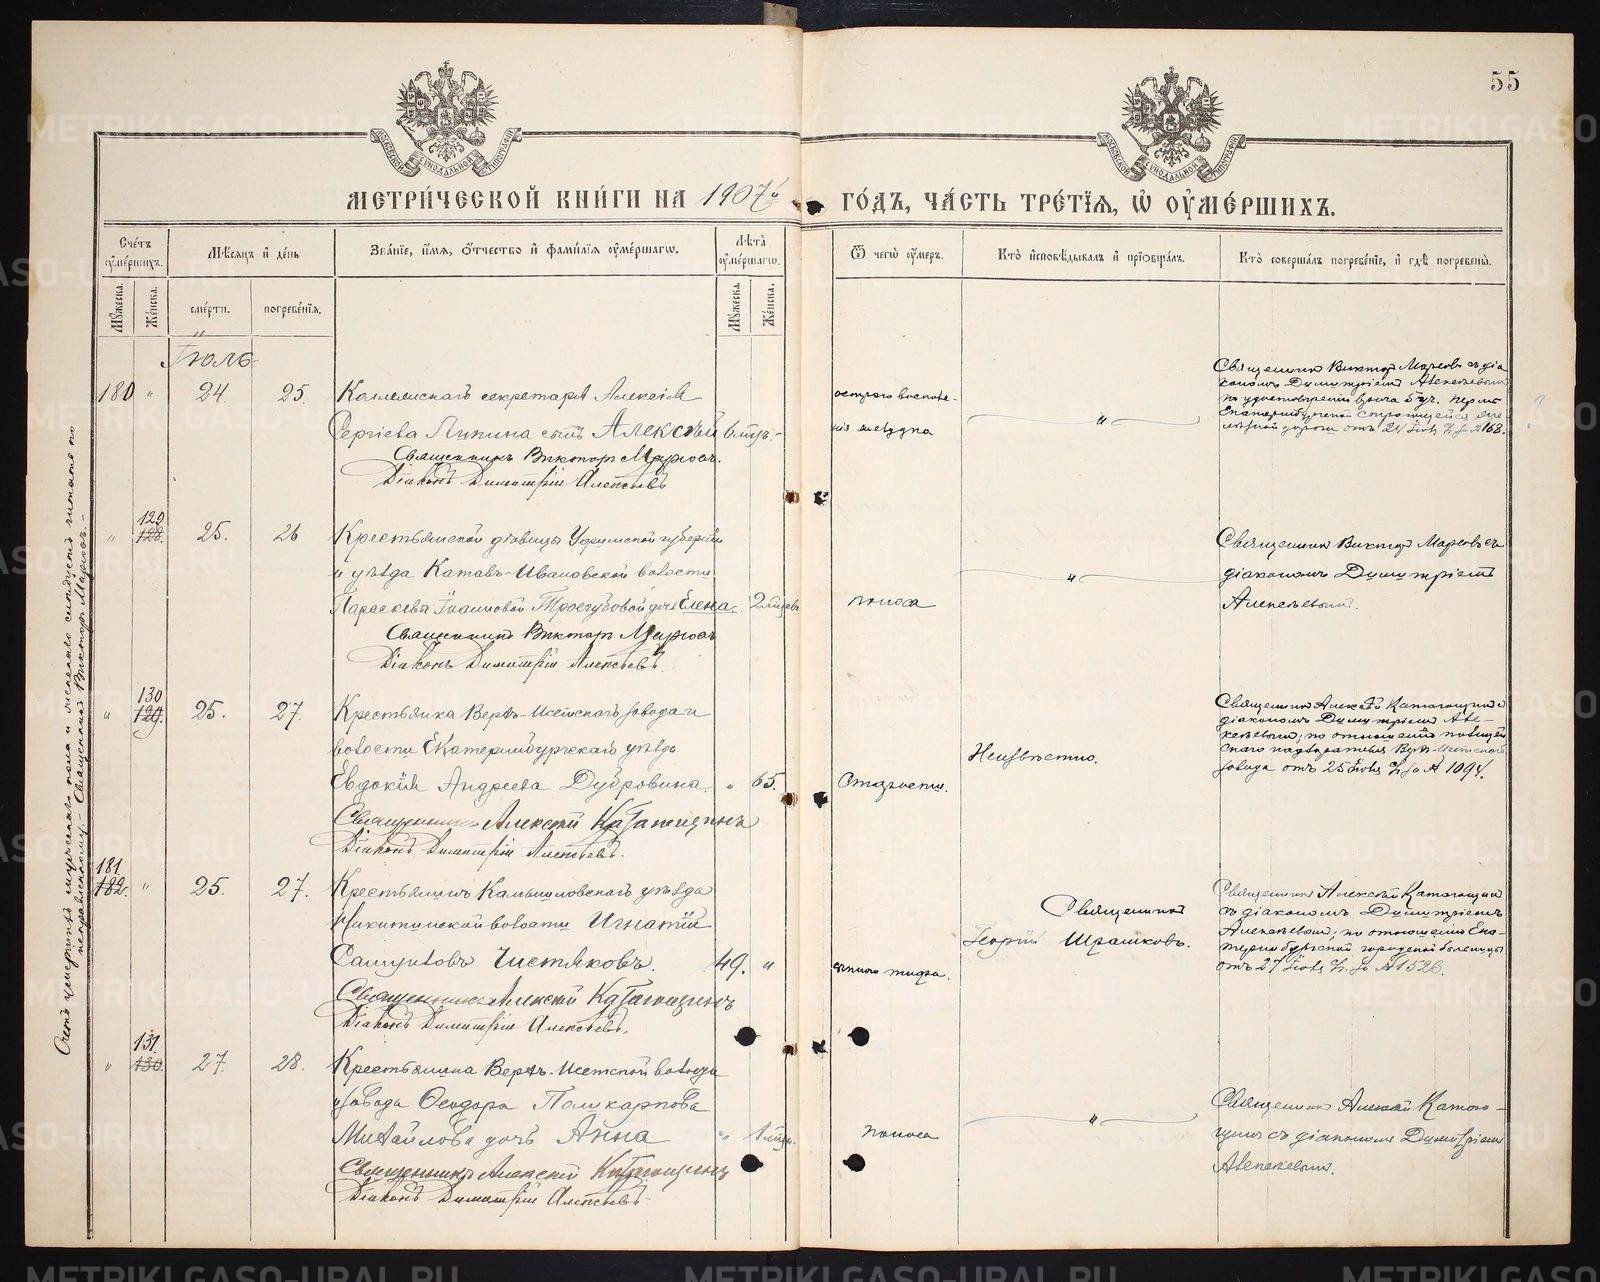 55
МОСКОВСКОЙ СѴНОДАЛЬНОЙ ТИПОГРАФІИ
МОСКОВСКОЙ СѴНОДАЛЬНОЙ ТИПОГРАФІИ
МЕТРИ́ЧЕСКОЙ КНИ́ГИ НА 1907й ГО́ДЪ, ЧА́СТЬ ТРЕ́ТІЯ, Ѡ ОУМЕ́РШИХЪ.
Сче́тъ оуме́ршихъ.
Мѣ́сяцъ и де́нь
Зва́ніе, и́мя, о́тчество и фами́лія оуме́ршагѡ.
Лѣта̀ оуме́ршагѡ.
Ѿ чегѡ̀ оу́меръ.
Кто̀ исповѣ́дывалъ и пріобща́лъ.
Кто̀ соверша́лъ погребе́ніе, и гдѣ̀ погребены̀.
Му́жеска.
Же́нска.
сме́рти.
погребе́нія.
Му́жеска.
Же́нска.
Іюль
180 " 24. 25.
Коллежскаго секретаря Алексія
Сергіева Липина сынъ Алексѣй 6 мѣс.
Священникъ Викторъ Марковъ.
Діаконъ Димитрій Алексѣевъ
острого воспале-
нія желудка
"
Священникъ Викторъ Марковъ съ діа
кономъ Димитріемъ Алексѣевымъ
по удостовѣренію врача 5 уч. Пермь
Екатеринбургской строющейся же
лѣзной дороги отъ 24 Іюля с. г. за № 168.
" 129 128. 25. 26
Крестьянской дѣвицы Уфимской губерніи
и уѣзда Катавъ-Ивановской волости
Параскева Іоанновой Трегубовой дочь Елена. 2 мѣсяц.
Священникъ Викторъ Марковъ
Діаконъ Димитрій Алексѣевъ.
поноса
"
Священникъ Викторъ Марковъ съ
діакономъ Димитріемъ
Алексѣевымъ.
" 130 129. 25. 27.
Крестьянка Верхъ-Исетскаго завода и
волости Екатеринбургскаго уѣзда
Евдокія Андреева Дубровина. " 65.
Священникъ Алексѣй Катагощинъ
Діаконъ Димитрій Алексѣевъ.
Старости.
Неизвѣстно.
Священникъ Алексѣй Катагощинъ съ
діакономъ Димитріемъ Але-
ксѣевымъ, по отношенію полицей
скаго надзирателя Верхъ-Исетскаго
завода отъ 25 Іюля с. г. за № 1094.
181. 182. " 25. 27.
Крестьянинъ Камышловскаго уѣзда
Никитинской волости Игнатій
Самуиловъ Чистяковъ. 49. "
Священникъ Алексѣй Катагощинъ
Діаконъ Димитрій Алексѣевъ.
тифа.
Священникъ
Георгій Ирашковъ.
Священникъ Алексѣй Катагощинъ
съ діакономъ Димитріемъ
Алексѣевымъ, по отношенію Ека-
теринбургской городской больницы
отъ 27 Іюля с. г. за № 1526.
" 131. 130. 27. 28.
Крестьянина Верхъ-Исетской волости
и завода Ѳеодора Поликарпова
Михайлова дочь Анна " 1 мѣс.
Священникъ Алексѣй Катагощинъ
Діаконъ Димитрій Алексѣевъ
поноса
"
Священникъ Алексѣй Катаго-
щинъ съ діакономъ Димитріемъ
Алексѣевымъ.
Счетъ умершихъ мужескаго пола и женскаго слѣдуетъ читать по
исправленному. - Священникъ Викторъ Марковъ. -
METRIKI.GASO-URAL.RU